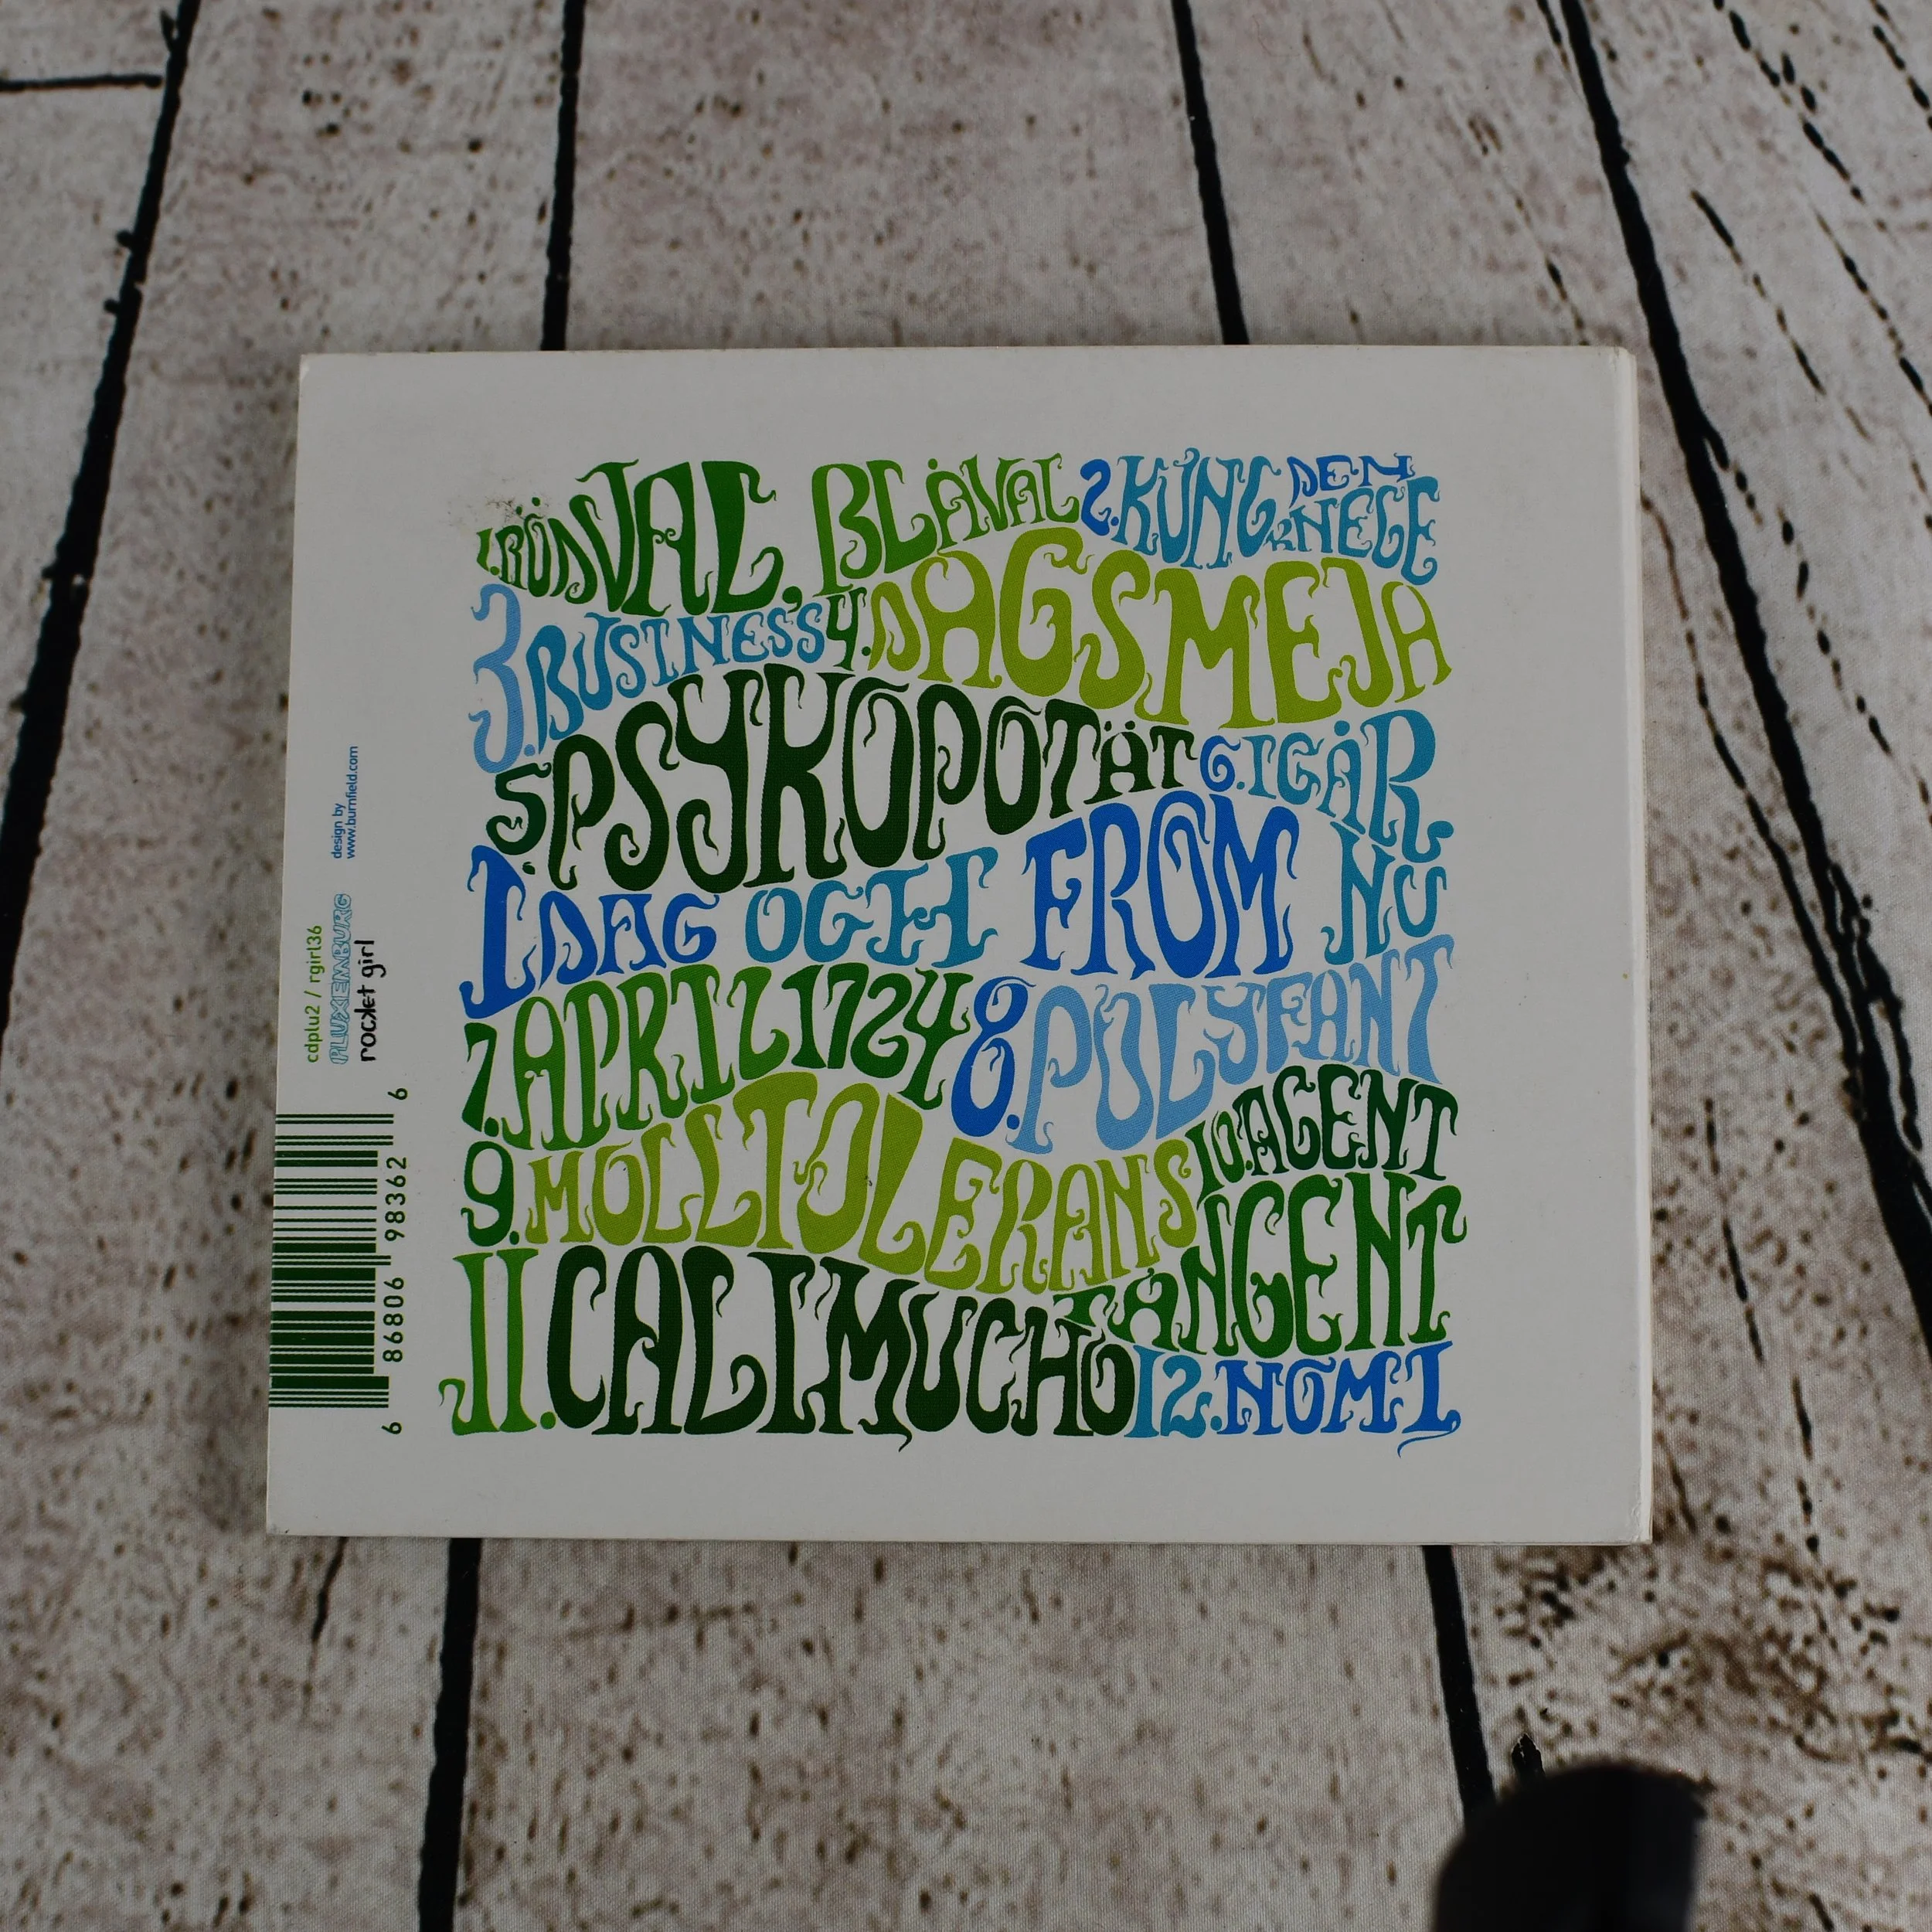 1. RÖDVAL, BLÅVAL 2. KUNG DEN KNEGE
3. BUSINESS 4. DAGSMEJA
5. PSYKOPOTÄT 6. IGÅR,
IDAG OCH FROM NU
7. APRIL 1724 8. POLYFANT
9. MOLLTOLERANS 10. AGENT
TANGENT
11. CALIMUCHO 12. NOMI
design by
www.burnfield.com
cdplu2 / rgirl36
PLUXEMBURG
rocket girl
6 86806 98362 6